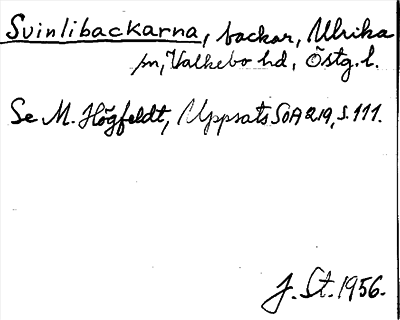 Svinlibackarna, backar, Ulrika
sn, Valkebo hd, Östg. l.
Se M. Högfeldt, Uppsats SOA 219, s. 111.
J. St. 1956.